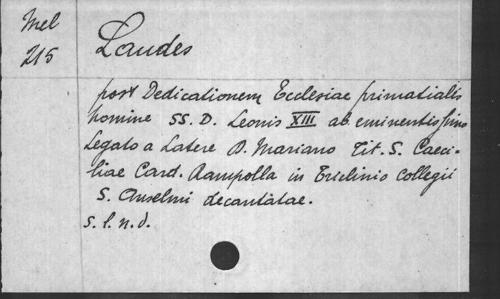 Mel
215
Laudes
post Dedicationem Ecclesiae primatialis
nomine SS. D. Leonis XIII ab eminentissimo
Legato a Latere D. Mariano Tit. S. Caeci-
liae Card. Rampolla in Triclinio Collegii
S. Anselmi decantatae.
s. l. n. d.